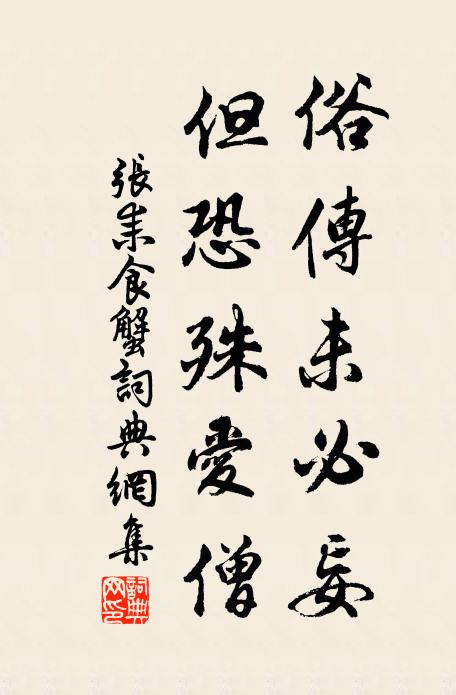 俗傳未必妄
但恐殊愛僧
張耒食蟹詞典網集
詞典
网印